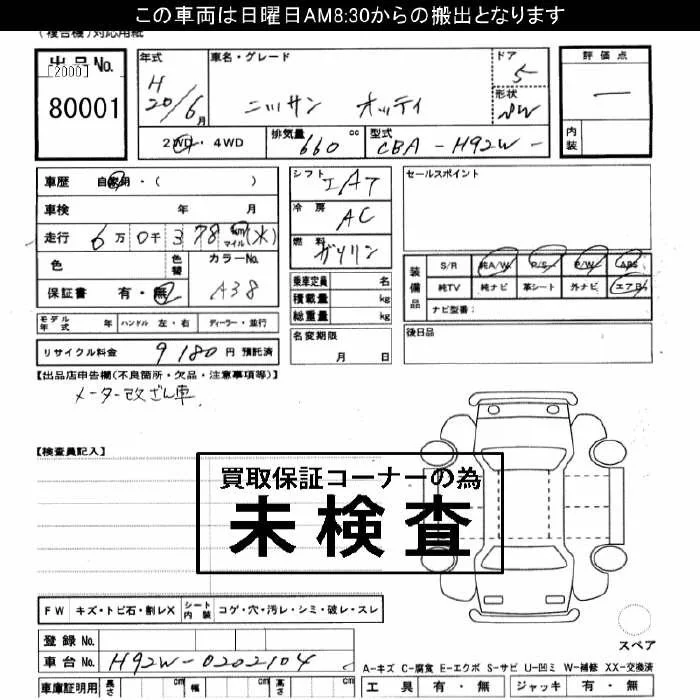 この車両は日曜日AM8:30からの搬出となります
(複合機)対応用紙
出品No.
[2000]
80001
年式
H
20/6月
車名・グレード
ニッサン オッティ
ドア
5
形状
評価点
内装
2WD・4WD
排気量 660 cc
型式 CBA-H92W-
車歴 自家用・( )
車検 年 月
走行 6万0千378 km マイル (*)
色 色替 カラーNo.
A38
保証書 有・無
モデル年式 年 ハンドル 左・右 ディーラー・並行
リサイクル料金 9180円 預託済
シフト IAT
冷房 AC
燃料 ガソリン
乗車定員 名
積載量 kg
総重量 kg
名変期限
月 日
セールスポイント
装備品
S/R 純A/W P/S P/W ABS
純TV 純ナビ 革シート 外ナビ エアB
ナビ型番:
後日品
【出品店申告欄(不良箇所・欠品・注意事項等)】
メーター改ざん車
【検査員記入】
買取保証コーナーの為
未検査
FW キズ・トビ石・割レX シート内装 コゲ・穴・汚レ・シミ・破レ・スレ
登録No.
車台No. H92W-0202104
スペア
A-キズ C-腐食 E-エクボ S-サビ U-凹ミ W-補修 XX-交換済
車庫証明用 長さ cm 幅 cm 高さ cm
工具 有・無 ジャッキ 有・無